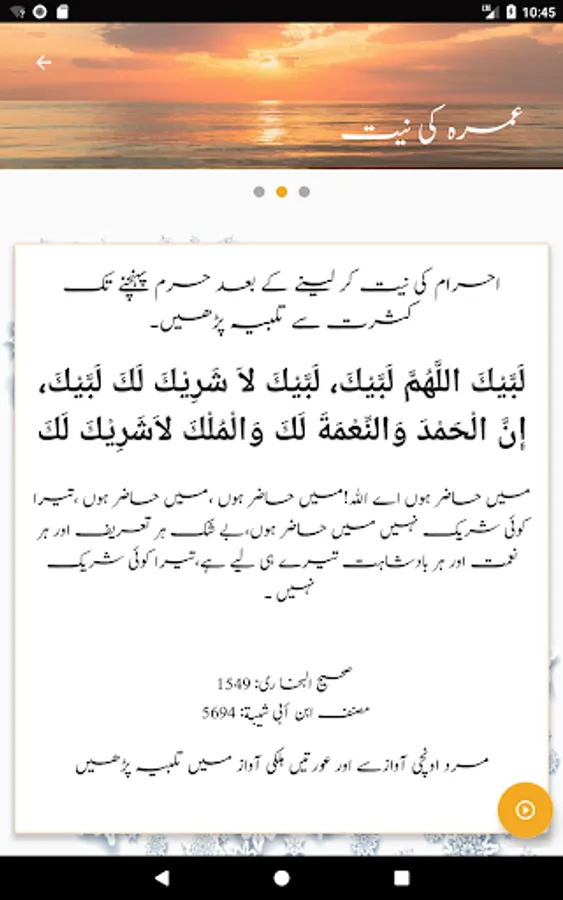 10:45
عمرہ کی نیت
احرام کی نیت کر لینے کے بعد حرم پہنچنے تک
کثرت سے تلبیہ پڑھیں۔
لَبَّيْكَ اللَّهُمَّ لَبَّيْكَ، لَبَّيْكَ لاَ شَرِيْكَ لَكَ لَبَّيْكَ،
إِنَّ الْحَمْدَ وَالنِّعْمَةَ لَكَ وَالْمُلْكَ لاَشَرِيْكَ لَكَ
میں حاضر ہوں اے اللہ!میں حاضر ہوں ،میں حاضر ہوں ،تیرا
کوئی شریک نہیں میں حاضر ہوں،بے شک ہر تعریف اور ہر
نعمت اور ہر بادشاہت تیرے ہی لیے ہے،تیرا کوئی شریک
نہیں ۔
صحیح البخاری: 1549
مصنف ابن أبي شيبة: 5694
مرد اونچی آوازسے اور عورتیں ہلکی آواز میں تلبیہ پڑھیں